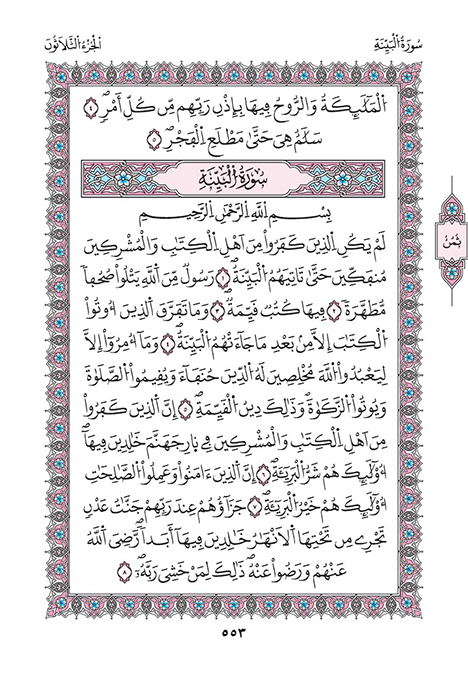 سُورَةُ الْبَيِّنَةِ
الجُزْءُ الثَّلَاثُونَ
الْمَلَٰٓئِكَةُ وَالرُّوحُ فِيهَا بِإِذْنِ رَبِّهِم مِّن كُلِّ أَمْرٖۖ ٤
سَلَٰمٌ هِيَ حَتَّىٰ مَطْلَعِ الْفَجْرِۖ ٥
سُورَةُ الْبَيِّنَةِ
بِسْمِ اللَّهِ الرَّحْمَٰنِ الرَّحِيمِ
لَمْ يَكُنِ الذِينَ كَفَرُواْ مِنَ اَهْلِ الْكِتَٰبِ وَالْمُشْرِكِينَ
مُنفَكِّينَ حَتَّىٰ تَاتِيَهُمُ الْبَيِّنَةُۖ ١ رَسُولٌ مِّنَ اَللَّهِ يَتْلُواْ صُحُفاٗ
مُّطَهَّرَةٗۖ ٢ فِيهَا كُتُبٌ قَيِّمَةٌۖ ٣ وَمَا تَفَرَّقَ الذِينَ أُوتُواْ
الْكِتَٰبَ إِلَّا مِنۢ بَعْدِ مَا جَآءَتْهُمُ الْبَيِّنَةُۖ ٤ وَمَآ أُمِرُوٓاْ إِلَّا
لِيَعْبُدُواْ اللَّهَ مُخْلِصِينَ لَهُ الدِّينَ حُنَفَآءَ وَيُقِيمُواْ الصَّلَوٰةَ
وَيُوتُواْ الزَّكَوٰةَۖ وَذَٰلِكَ دِينُ الْقَيِّمَةِۖ ٥ إِنَّ الذِينَ كَفَرُواْ
مِنَ اَهْلِ الْكِتَٰبِ وَالْمُشْرِكِينَ فِي نارِ جَهَنَّمَ خَٰلِدِينَ فِيهَآۖ
أُوْلَٰٓئِكَ هُمْ شَرُّ الْبَرِيٓـَٔةِۖ ٦ إِنَّ الذِينَ ءَامَنُواْ وَعَمِلُواْ الصَّٰلِحَٰتِ
أُوْلَٰٓئِكَ هُمْ خَيْرُ الْبَرِيٓـَٔةِۖ ٧ جَزَآؤُهُمْ عِندَ رَبِّهِمْ جَنَّٰتُ عَدْنٖ
تَجْرِي مِن تَحْتِهَا اَلَانْهَٰرُ خَٰلِدِينَ فِيهَآ أَبَداٗۖ رَّضِيَ اَللَّهُ
عَنْهُمْ وَرَضُواْ عَنْهُۖ ذَٰلِكَ لِمَنْ خَشِيَ رَبَّهُۥۖ ٨
ثُمُنُ
٥٥٣